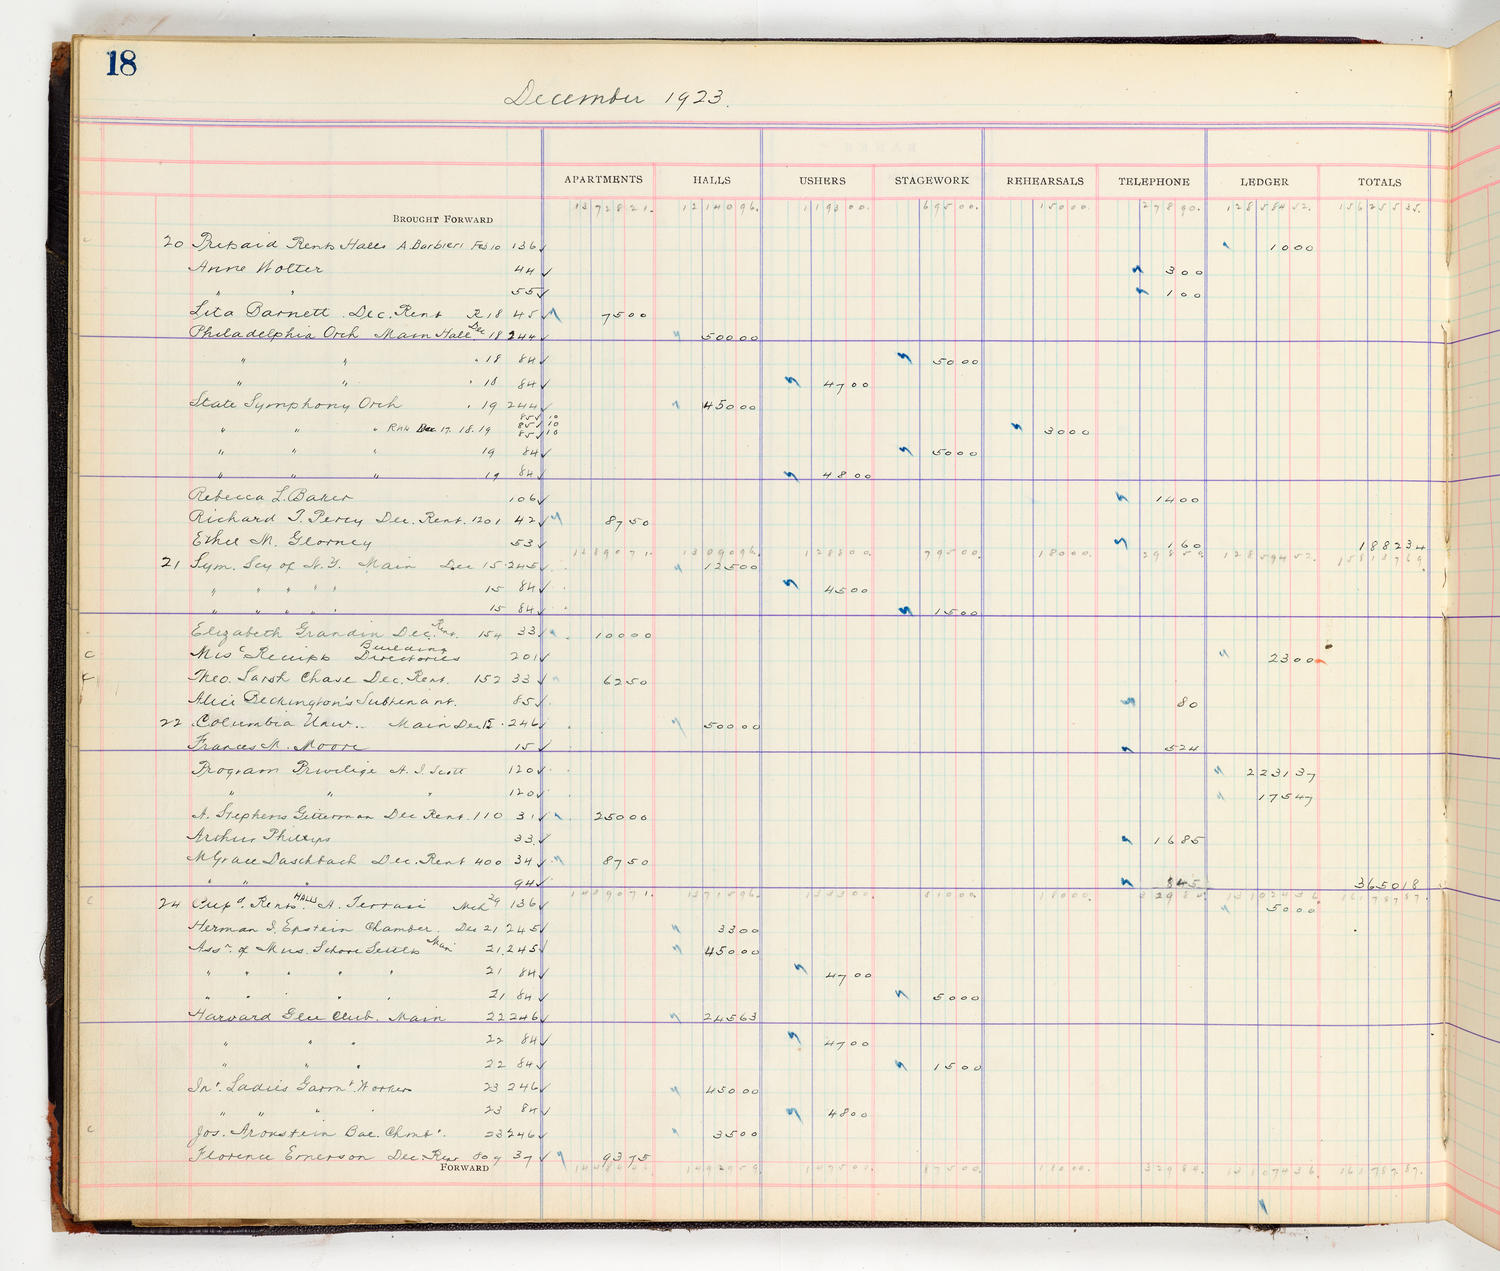 18
December 1923.
APARTMENTS HALLS USHERS STAGEWORK REHEARSALS TELEPHONE LEDGER TOTALS
BROUGHT FORWARD 1372821. 1214096. 119300. 69500. 15000. 27890. 12858452. 15625535.
20 Prepaid Rents Halls A. Barbieri Feb 10 136 ✓ 1000
Anne Wolter 44 ✓ 300
" " 55 ✓ 100
Lita Barnett Dec. Rent R18 45 ✓ 7500
Philadelphia Orch Main Hall Dec 18 244 ✓ 50000
" " " 18 84 ✓ 5000
" " " 18 84 ✓ 4700
State Symphony Orch " 19 244 ✓ 45000
85 ✓ 10
" " " Reh Dec. 17. 18. 19 85 ✓ 10 3000
85 ✓ 10
" " " 19 84 ✓ 5000
" " " 19 84 ✓ 4800
Rebecca L. Baker 106 ✓ 1400
Richard T. Percy Dec. Rent. 1201 42 ✓ 8750
Ethel M. 53 ✓ 160 188234
1309096. 128800. 79500. 18000. 29850. 12859452.
21 Sym. Scy of N.Y. Main Dec 15 245 ✓ 12500
" " " " " 15 84 ✓ 4500
" " " " " 15 84 ✓ 1500
Elizabeth Grandin Dec. Rent. 154 33 ✓ 10000
C Misc Receipts Building Directories 201 ✓ 2300
Theo. Sarsh Chase Dec. Rent. 152 33 ✓ 6250
Alice Beckington's Subtenant. 85 ✓ 80
22 Columbia Univ. Main Dec 15 246 ✓ 50000
Frances M. Moore 15 ✓ 524
Program Privilige A. I. Scott 120 ✓ 223137
" " " 120 ✓ 17547
A. Stephens Gitterman Dec Rent. 110 31 ✓ 25000
Arthur Phillips 33. ✓ 1685
M Grace Daschbach Dec. Rent 400 34 ✓ 8750
" " " 94 ✓ 845 365018
C 24 Prepd. Rents Halls A. Terrasi Mch 29 136 ✓ 5000
Herman I. Epstein Chamber. Dec 21 245 ✓ 3300
Assn. of Mus. School Settls Main 21. 245 ✓ 45000
" " " " " 21 84 ✓ 4700
" " " " " 21 84 ✓ 5000
Harvard Glee Club. Main 22 246 ✓ 24563
" " " 22 84 ✓ 4700
" " " 22 84 ✓ 1500
Int. Ladies Garmt. Workers 23 246 ✓ 45000
" " " " 23 84 ✓ 4800
C Jos. Aronstein Bal. Chmbr. 23 246 ✓ 3500
Florence Emerson Dec. Rent 809 37 ✓ 9375
FORWARD 1492959. 147500. 87500. 18000. 32980. 13107436. 16178787.